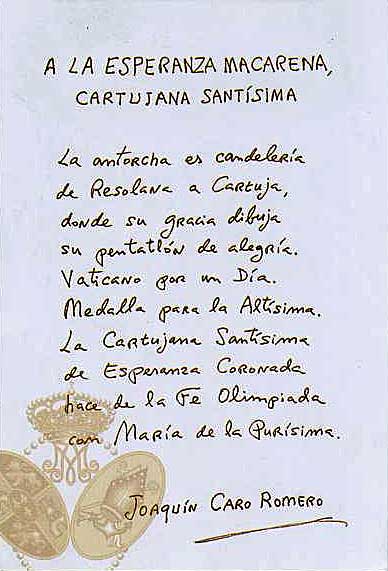 A LA ESPERANZA MACARENA,
CARTUJANA SANTÍSIMA
La antorcha es candelería
de Resolana a Cartuja,
donde su gracia dibuja
su pentatlón de alegría.
Vaticano por un Día.
Medalla para la Altísima.
La Cartujana Santísima
de Esperanza Coronada
hace de la Fe Olimpiada
con María de la Purísima.
JOAQUÍN CARO ROMERO